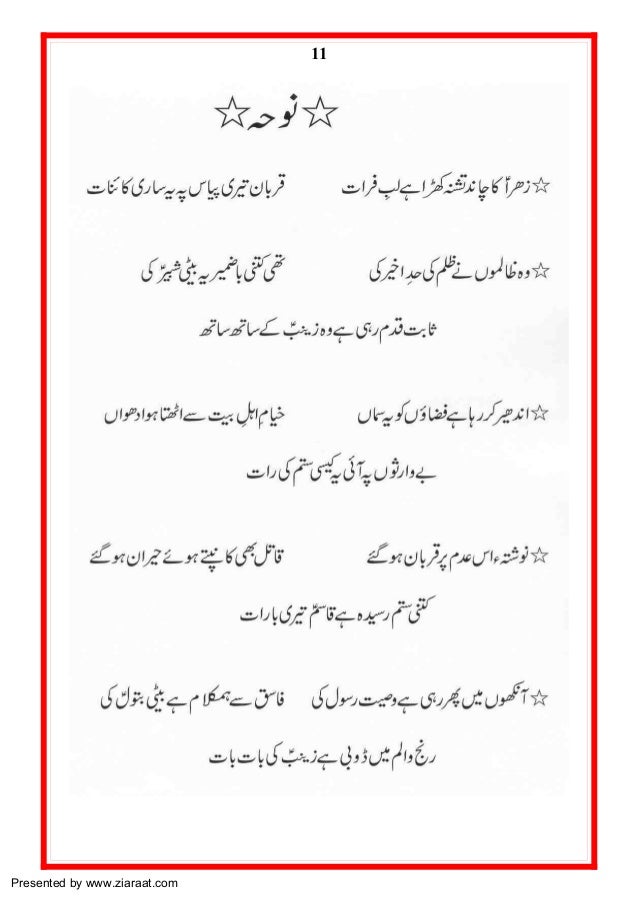 11
☆ نوحہ ☆
☆ زھراؑ کا چاند تشنہ کھڑا ہے لبِ فرات قربان تیری پیاس پہ یہ ساری کائنات
☆ وہ ظالموں نے ظلم کی حدِ اخیر کی تھی کتنی باضمیر یہ بیٹی شبیرؑ کی
ثابت قدم رہی ہے وہ زینبؑ کے ساتھ ساتھ
☆ اندھیر کر رہا ہے فضاؤں کو یہ سماں خیامِ اہلِ بیت سے اٹھتا ہوا دھواں
بے وارثوں پہ آئی یہ کیسی ستم کی رات
☆ نوشتہء اس عدم پر قربان ہو گئے قاتل بھی کانپتے ہوئے حیران ہو گئے
کتنی ستم رسیدہ ہے قاسمؑ تیری بارات
☆ آنکھوں میں پھر رہی ہے وصیت رسول کی فاسق سے ہمکلام ہے بیٹی بتولؑ کی
رنج والم میں ڈوبی ہے زینبؑ کی بات بات
Presented by www.ziaraat.com